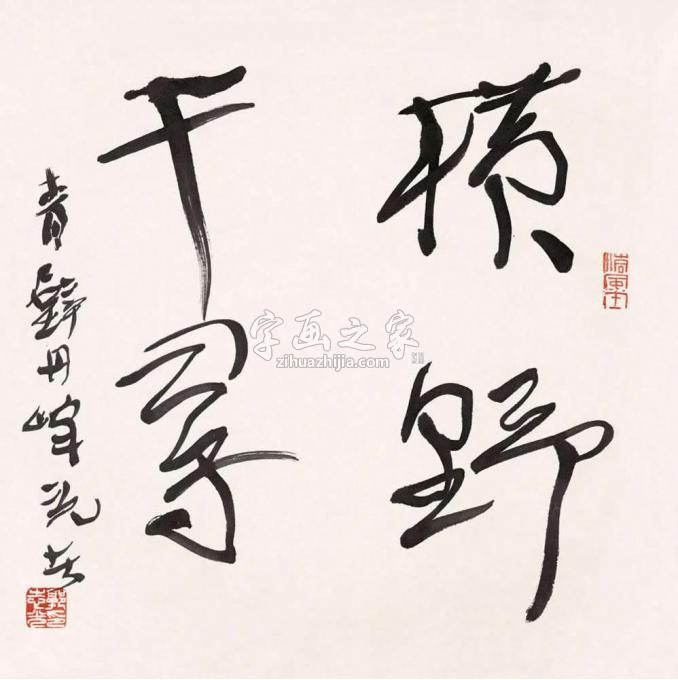 横野
千尋
青壁丹峰
字画之家
zihuazhijia.com